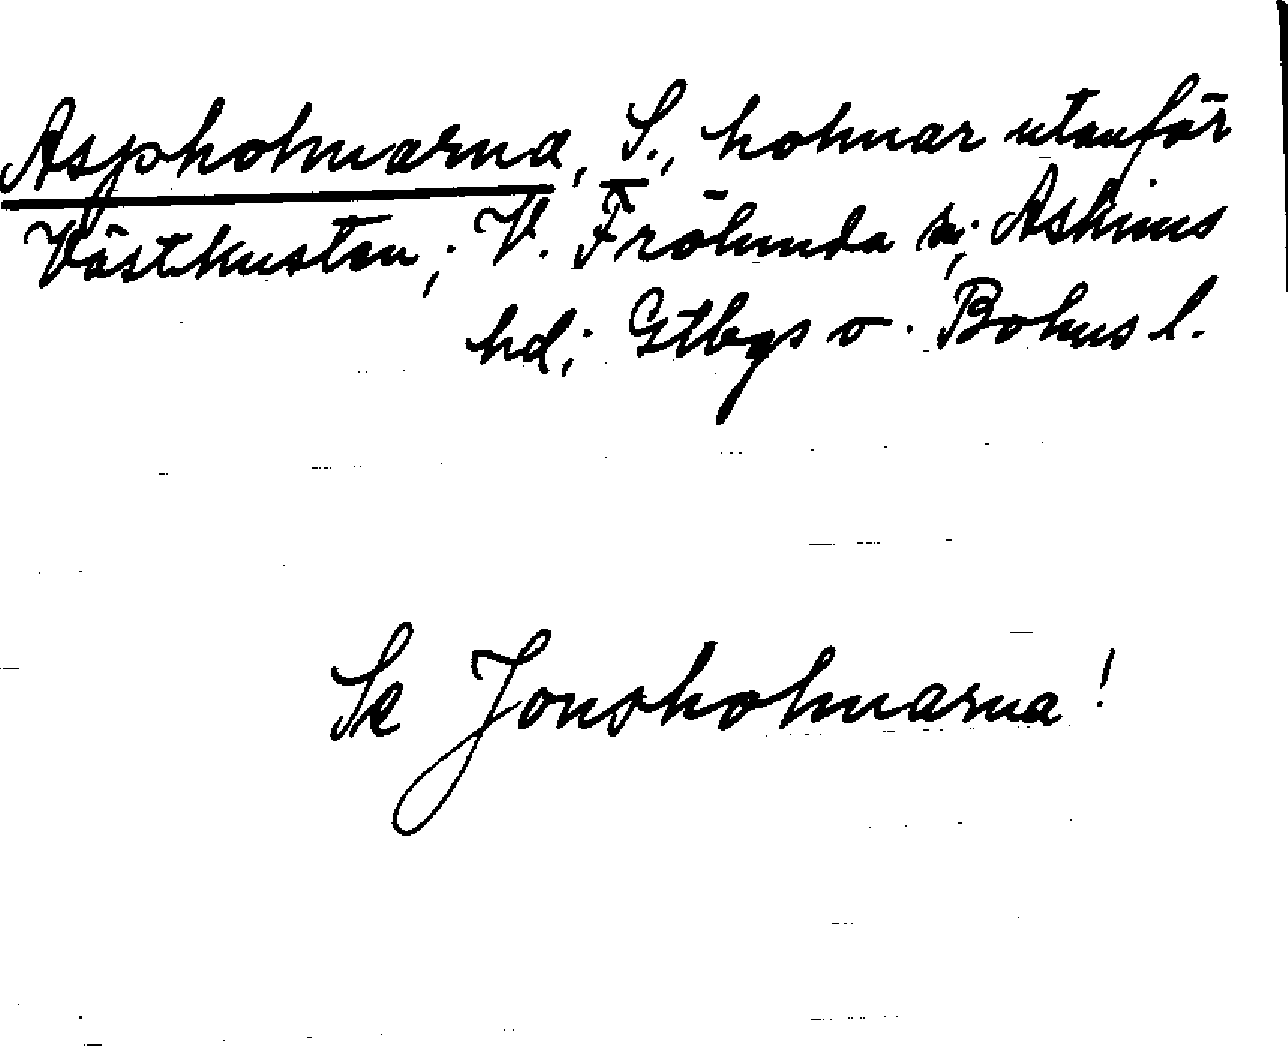 Aspholmarna, S., holmar utanför
Västkusten; V. Frölunda sn; Askims
hd; Gtbgs o. Bohus l.
Se Jonsholmarna!